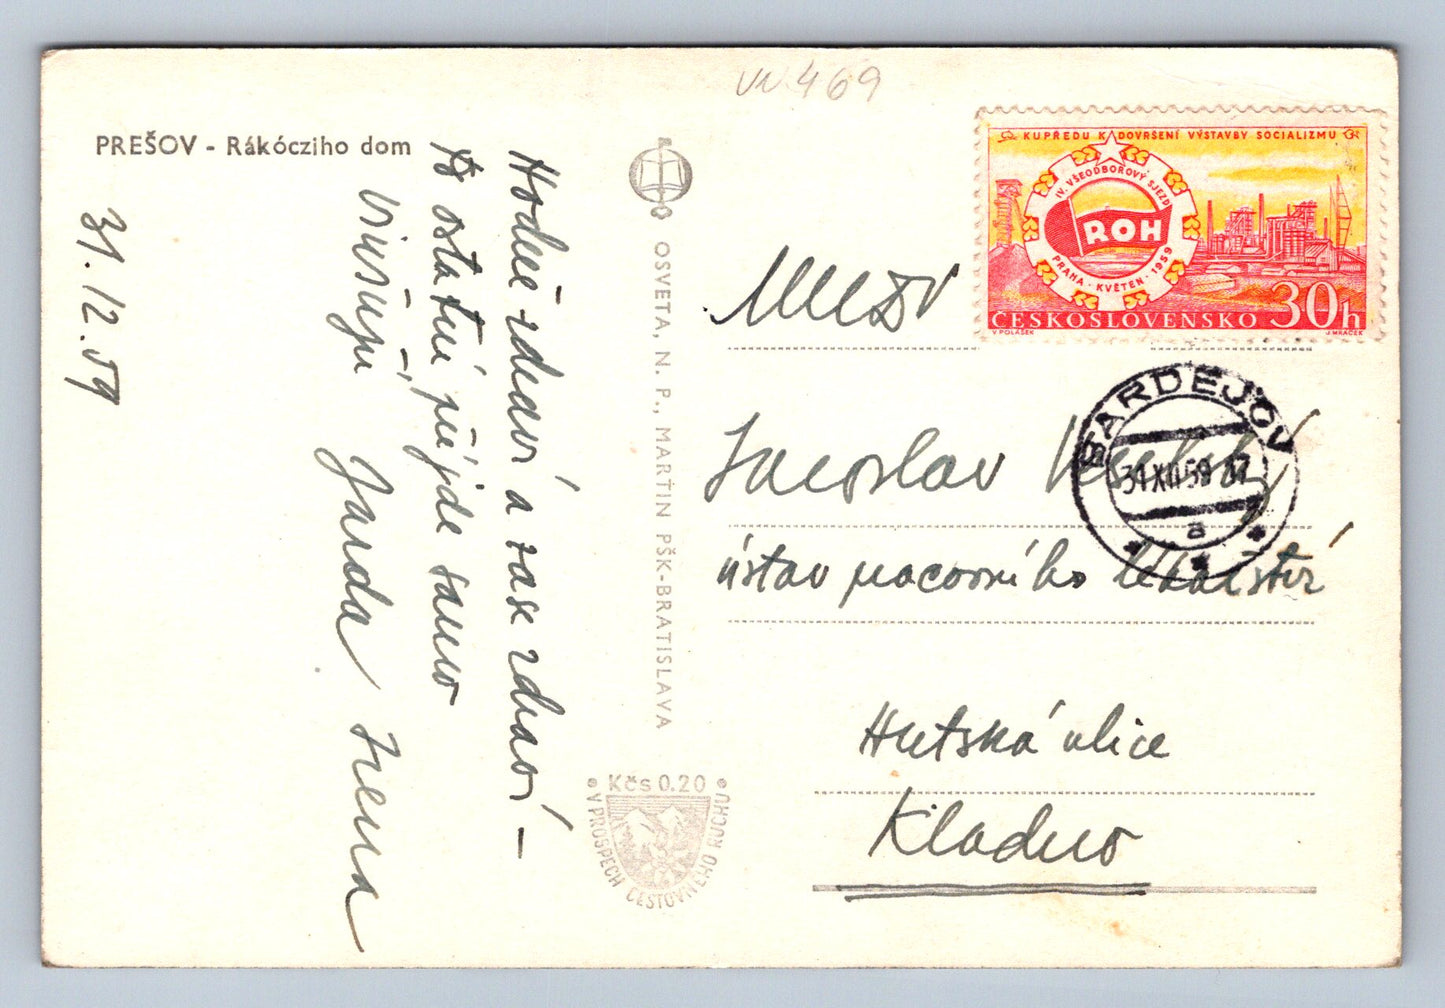 VN 469
PREŠOV - Rákócziho dom
31.12.59
Hodně zdaví a zase zdraví –
to ostatní půjde samo
Jarda Irena
OSVETA, N. P., MARTIN PŠK-BRATISLAVA
Kčs 0.20
V PROSPECH CESTOVNÉHO RUCHU
KUPŘEDU K DOVRŠENÍ VÝSTAVBY SOCIALIZMU
IV. VŠEODBOROVÝ SJEZD
ROH
PRAHA · KVĚTEN · 1959
30h
ČESKOSLOVENSKO
V. POLÁŠEK J. MRÁČEK
BARDEJOV
31.XII.59 17
a
MUDr
Jaroslav Veselský
ústav pracovního lékařství
Hutská ulice
Kladno